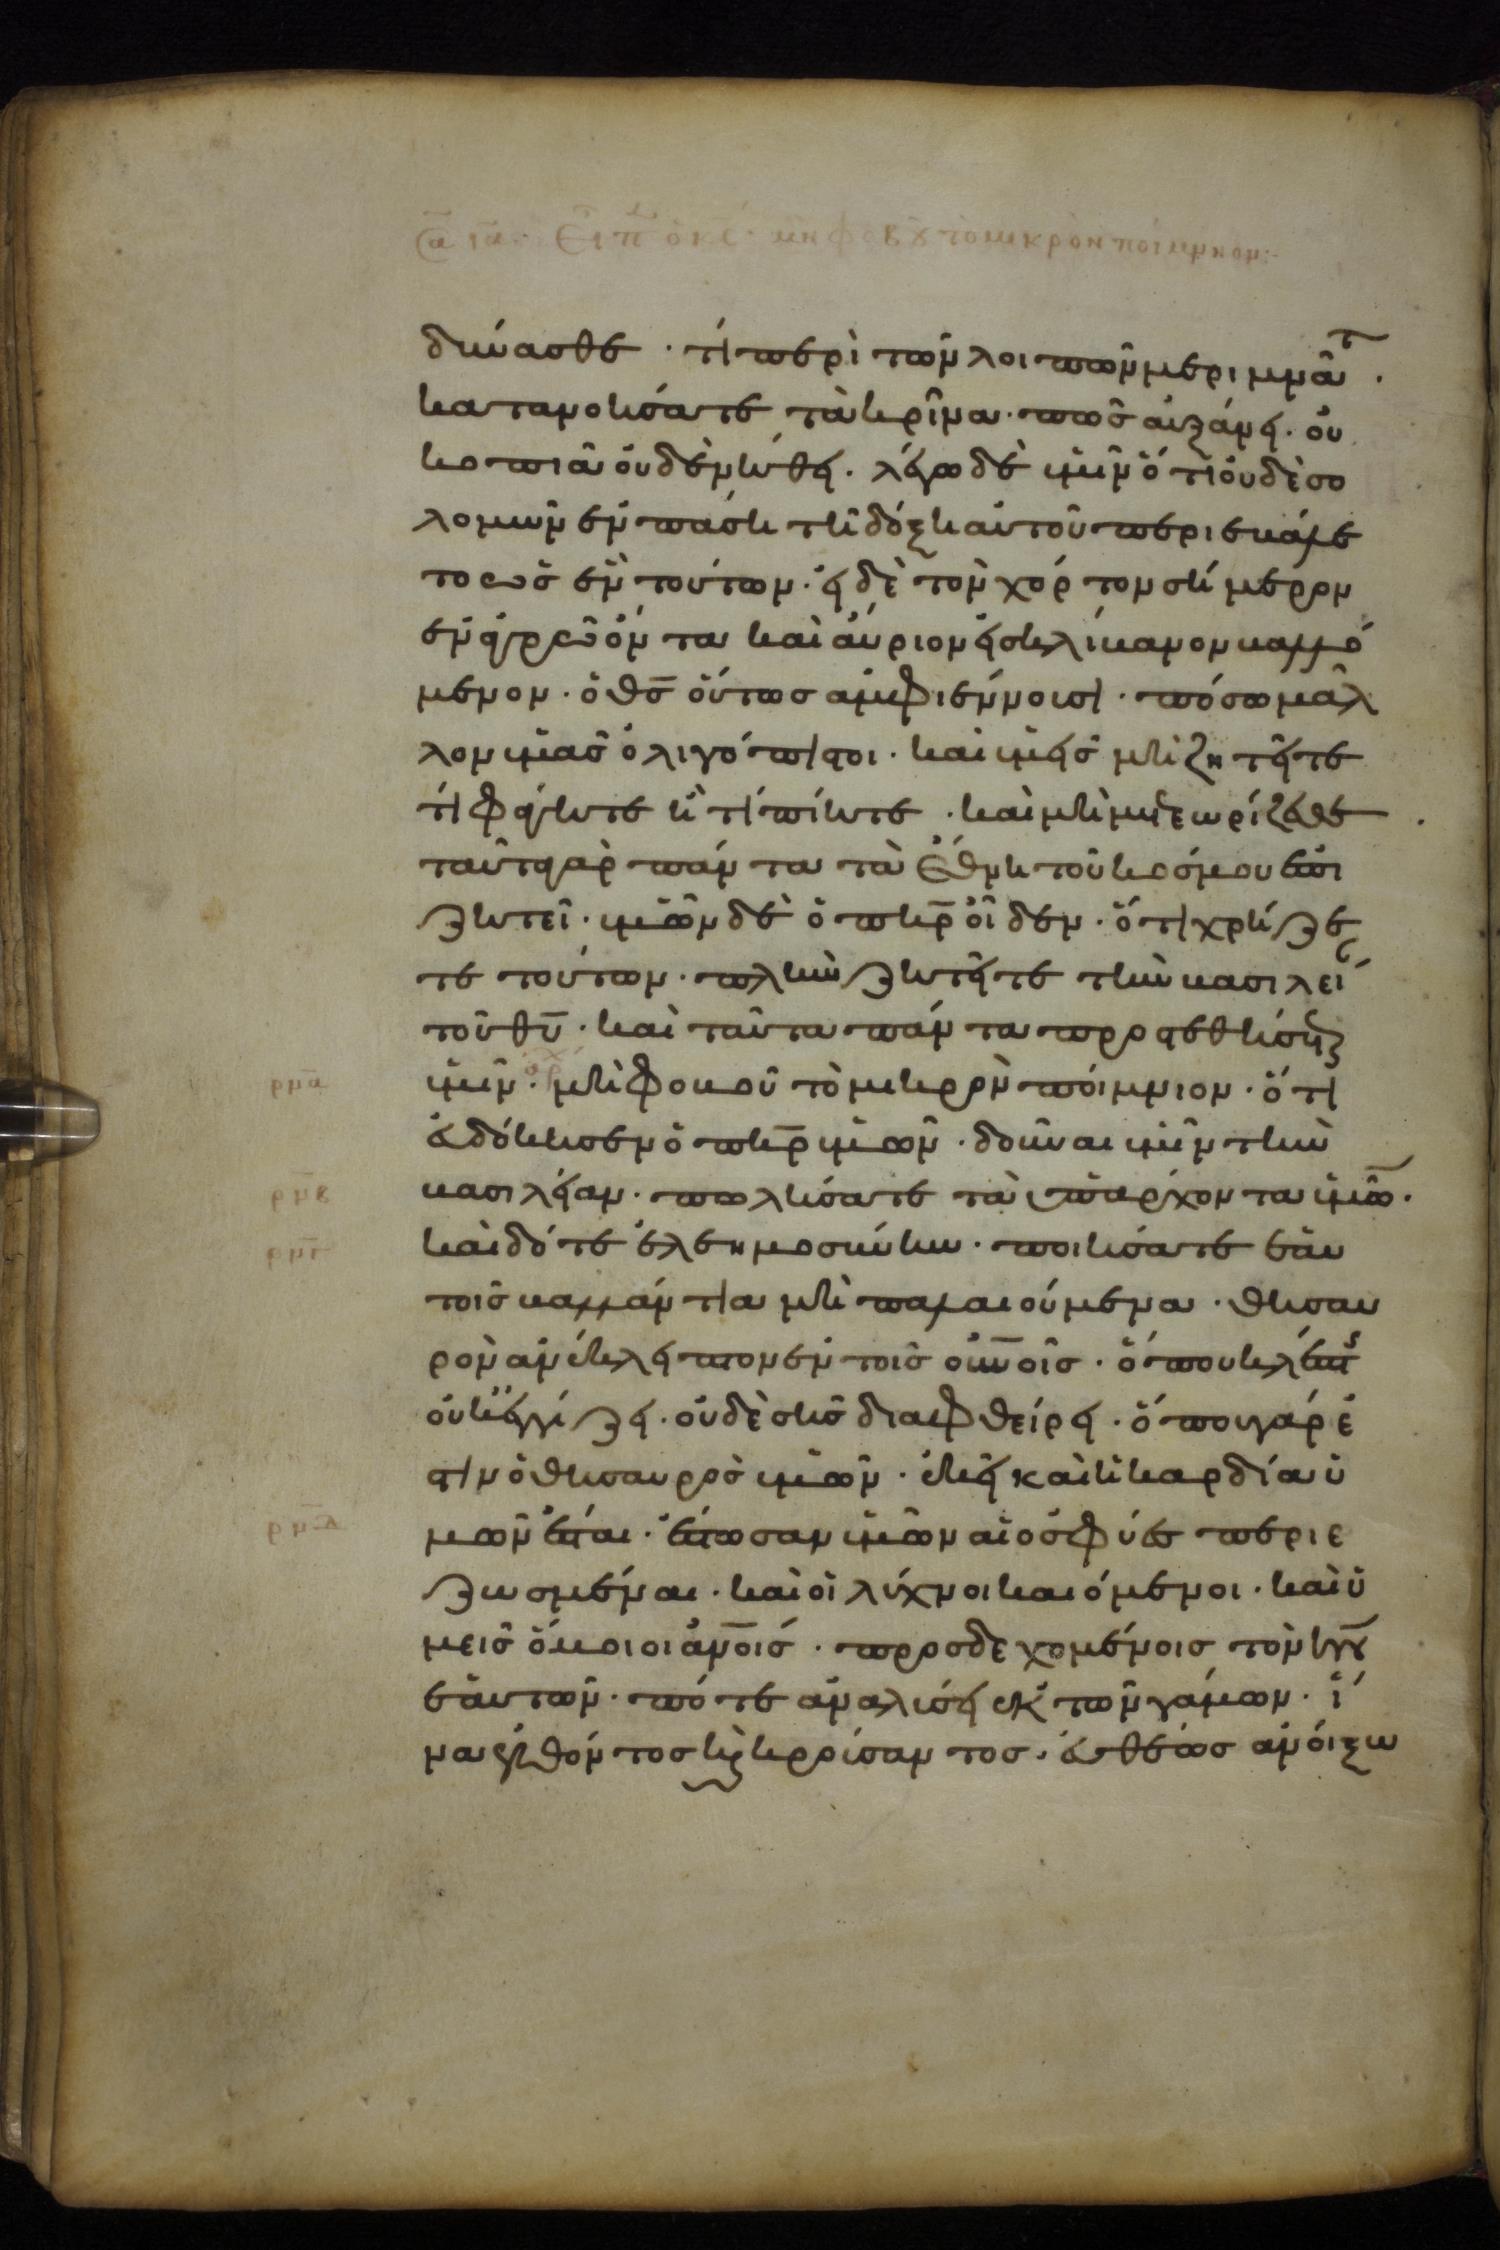 Σα ια· Εἶπ ὁ κς· μὴ φοβοῦ τὸ μικρὸν ποίμνιον:
δύνασθε · τί περὶ τῶν λοιπῶν μεριμνᾶτ ·
κατανοήσατε τὰ κρίνα· πῶς αὐξάνει· οὐ
κοπιᾶ οὐδὲ νήθει· λέγω δὲ ὑμῖν ὅτι οὐδὲ σο
λομὼν ἐν πάση τῆ δόξη αὐτοῦ περιεβάλε
το ὡς ἓν τούτων· εἰ δὲ τὸν χόρτον σήμερον
ἐν ἀγρῶ ὄντα καὶ αὔριον εἰς κλίβανον βαλλό
μενον· ὁ θς οὕτως ἀμφιέννυσι· πόσω μᾶλ
λον ὑμᾶς ὀλιγόπιστοι· καὶ ὑμεῖς μὴ ζητεῖτε
τί φάγητε ἢ τί πίητε · καὶ μὴ μετεωρίζεσθε ·
ταῦτα γὰρ πάντα τὰ ἔθνη τοῦ κόσμου ἐπι
ζητεῖ· ὑμῶν δὲ ὁ πηρ οἶδεν· ὅτι χρήζε
τε τούτων· πλὴν ζητεῖτε τὴν βασιλεί
τοῦ θυ· καὶ ταῦτα πάντα προστεθήσετ
ρμα ὑμῖν· μὴ φοβοῦ τὸ μικρὸν ποίμνιον· ὅτι
εὐδόκησεν ὁ πηρ ὑμῶν· δοῦναι ὑμῖν τὴν
ρμβ βασιλείαν· πωλήσατε τὰ ὑπάρχοντα ὑμῶ·
ρμγ καὶ δότε ἐλεημοσύνην· ποιήσατε ἑαυ
τοῖς βαλλάντια μὴ παλαιούμενα· θησαυ
ρὸν ἀνέκλειπτον ἐν τοῖς οὐνοῖς· ὅπου κλέπτ
οὐκ ἐγγίζει· οὐδὲ σὴς διαφθείρει· ὅπου γάρ ἐ
στιν ὁ θησαυρὸς ὑμῶν· ἐκεῖ καὶ ἡ καρδία ὑ
ρμδ μῶν ἔσται· ἔστωσαν ὑμῶν αἱ ὀσφύες περιε
ζωσμέναι· καὶ οἱ λύχνοι καιόμενοι· καὶ ὑ
μεῖς ὅμοιοι ἀνοις· προσδεχομένοις τὸν κν
ἑαυτῶν· πότε ἀναλύσει ἐκ τῶν γάμων· ἵ
να ἐλθόντος κ κρούσαντος· εὐθέως ἀνοίξω